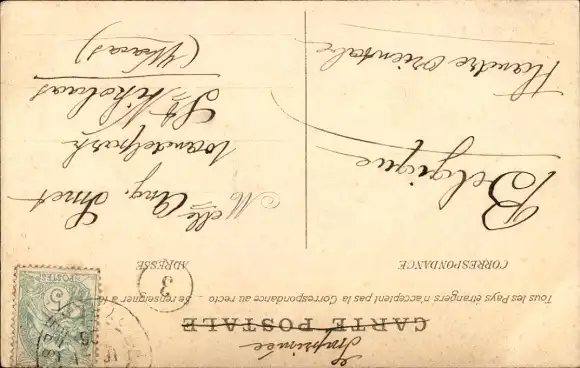 Imprimée
CARTE POSTALE
Tous les Pays étrangers n'acceptent pas la Correspondance au recto - Se renseigner à la
CORRESPONDANCE
ADRESSE
3
Belgique
Flandre orientale
Mlle Ang. Smet
Wandelpark
St Nikolaas
(Waas)
POSTES
5